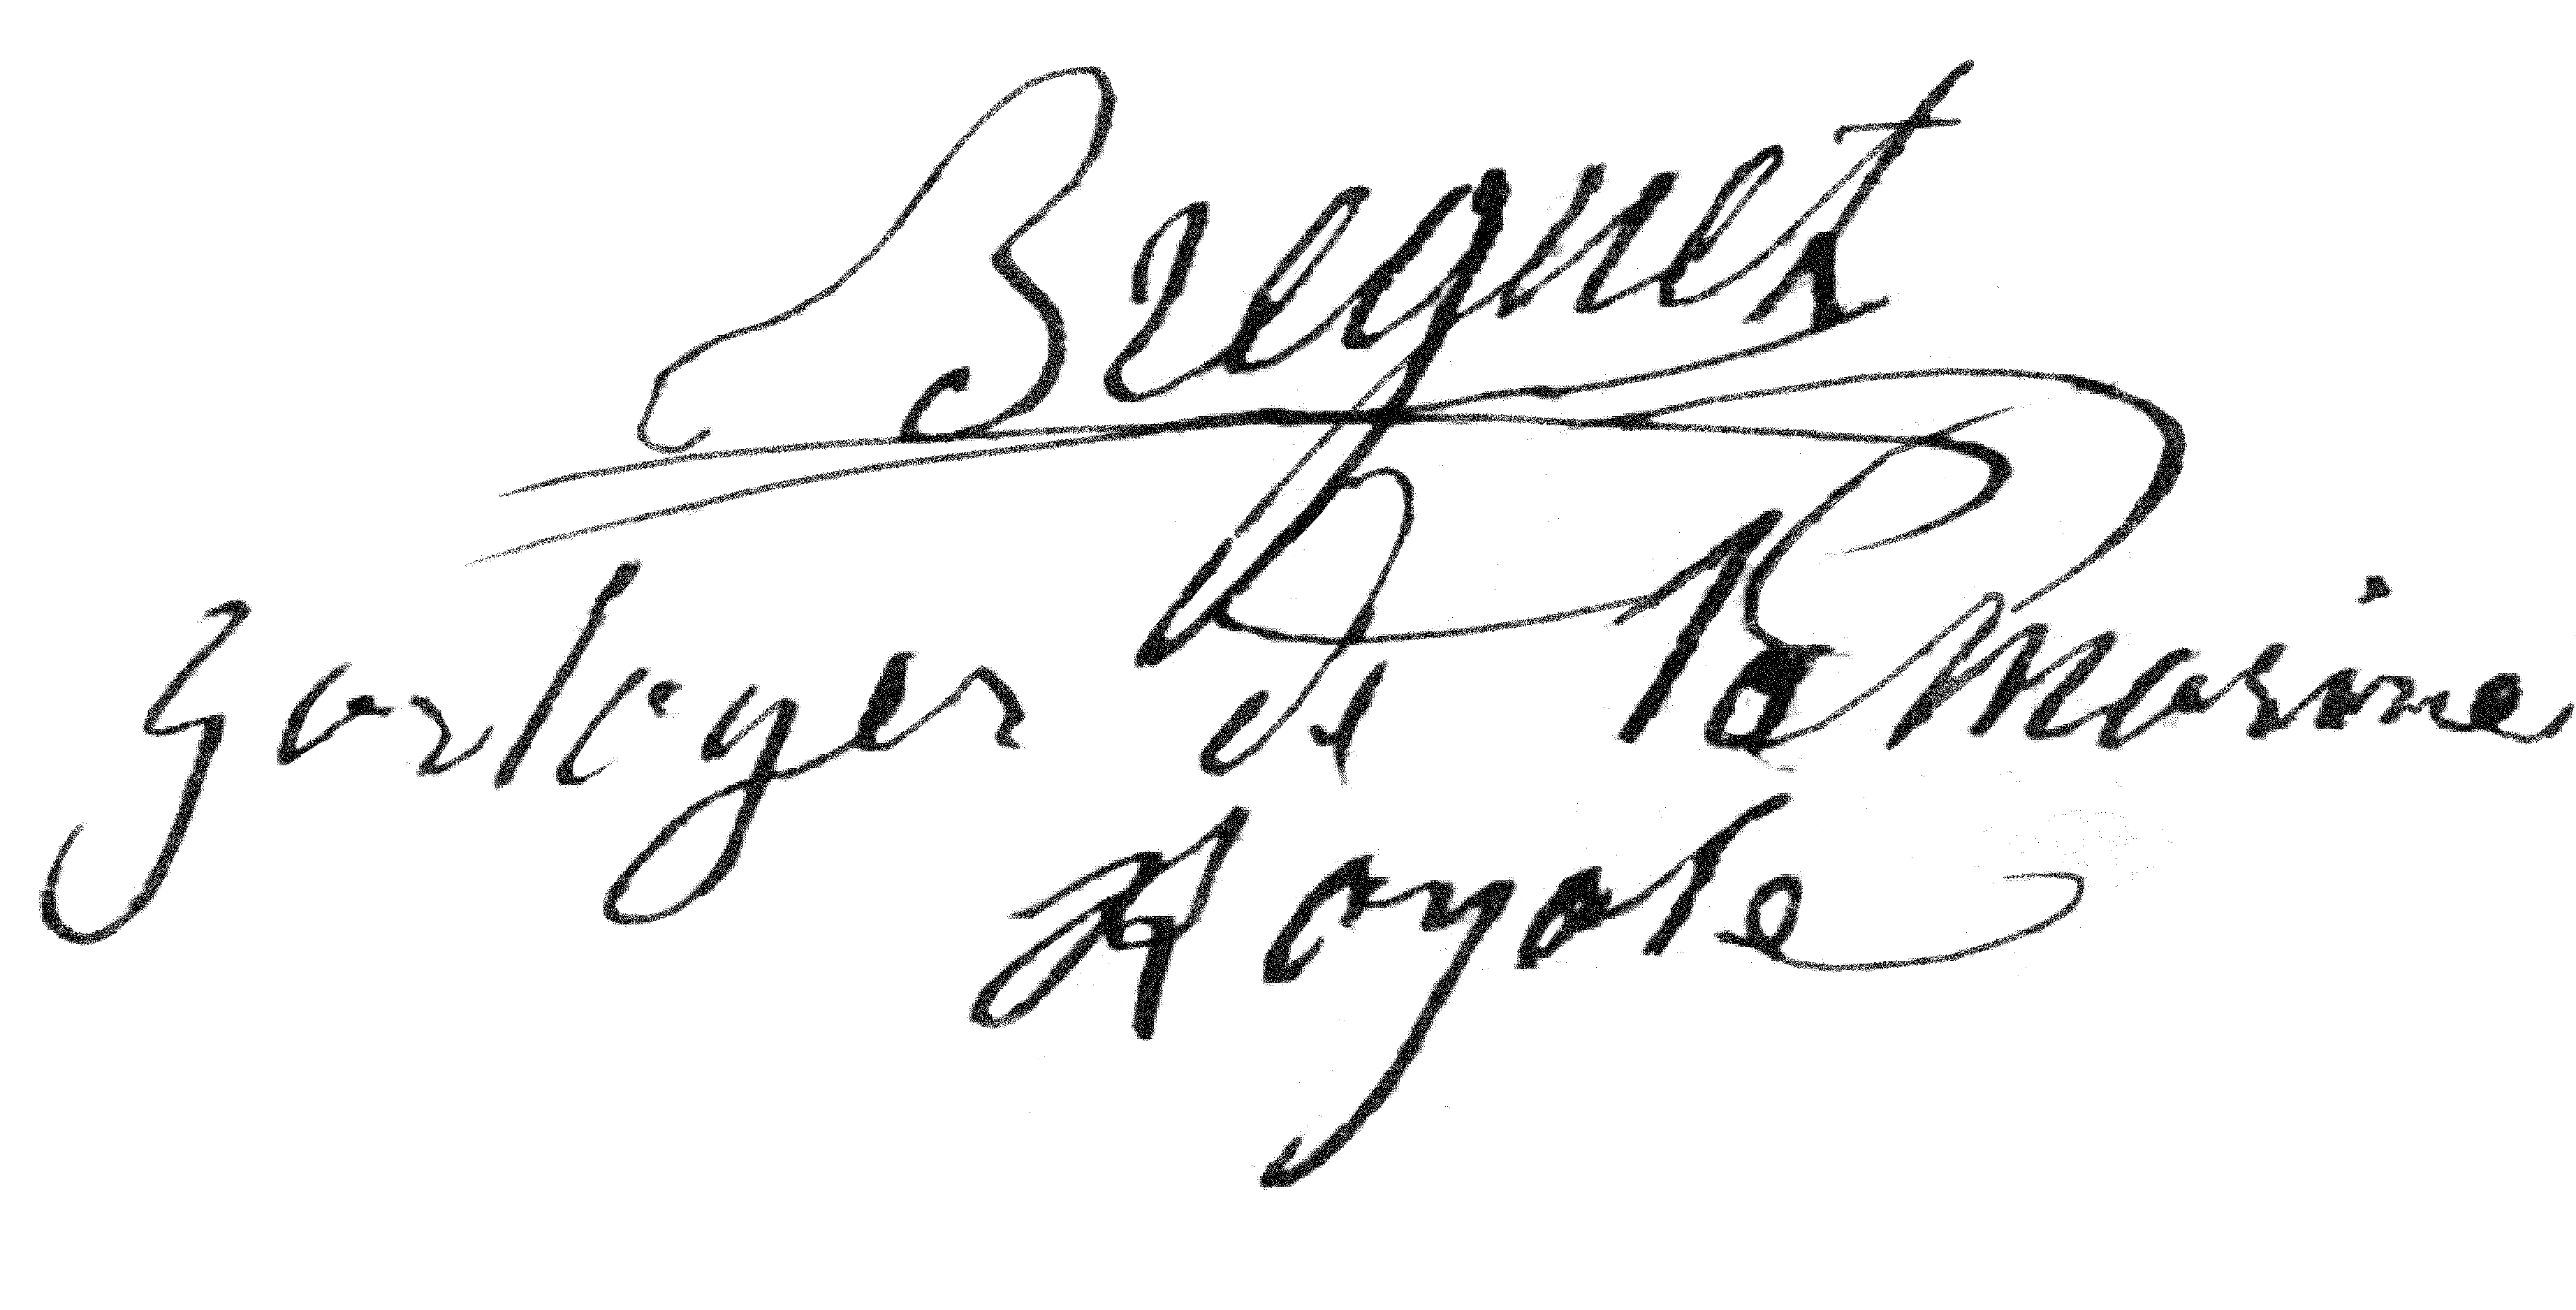 Breguet
horloger de la Marine
Royale